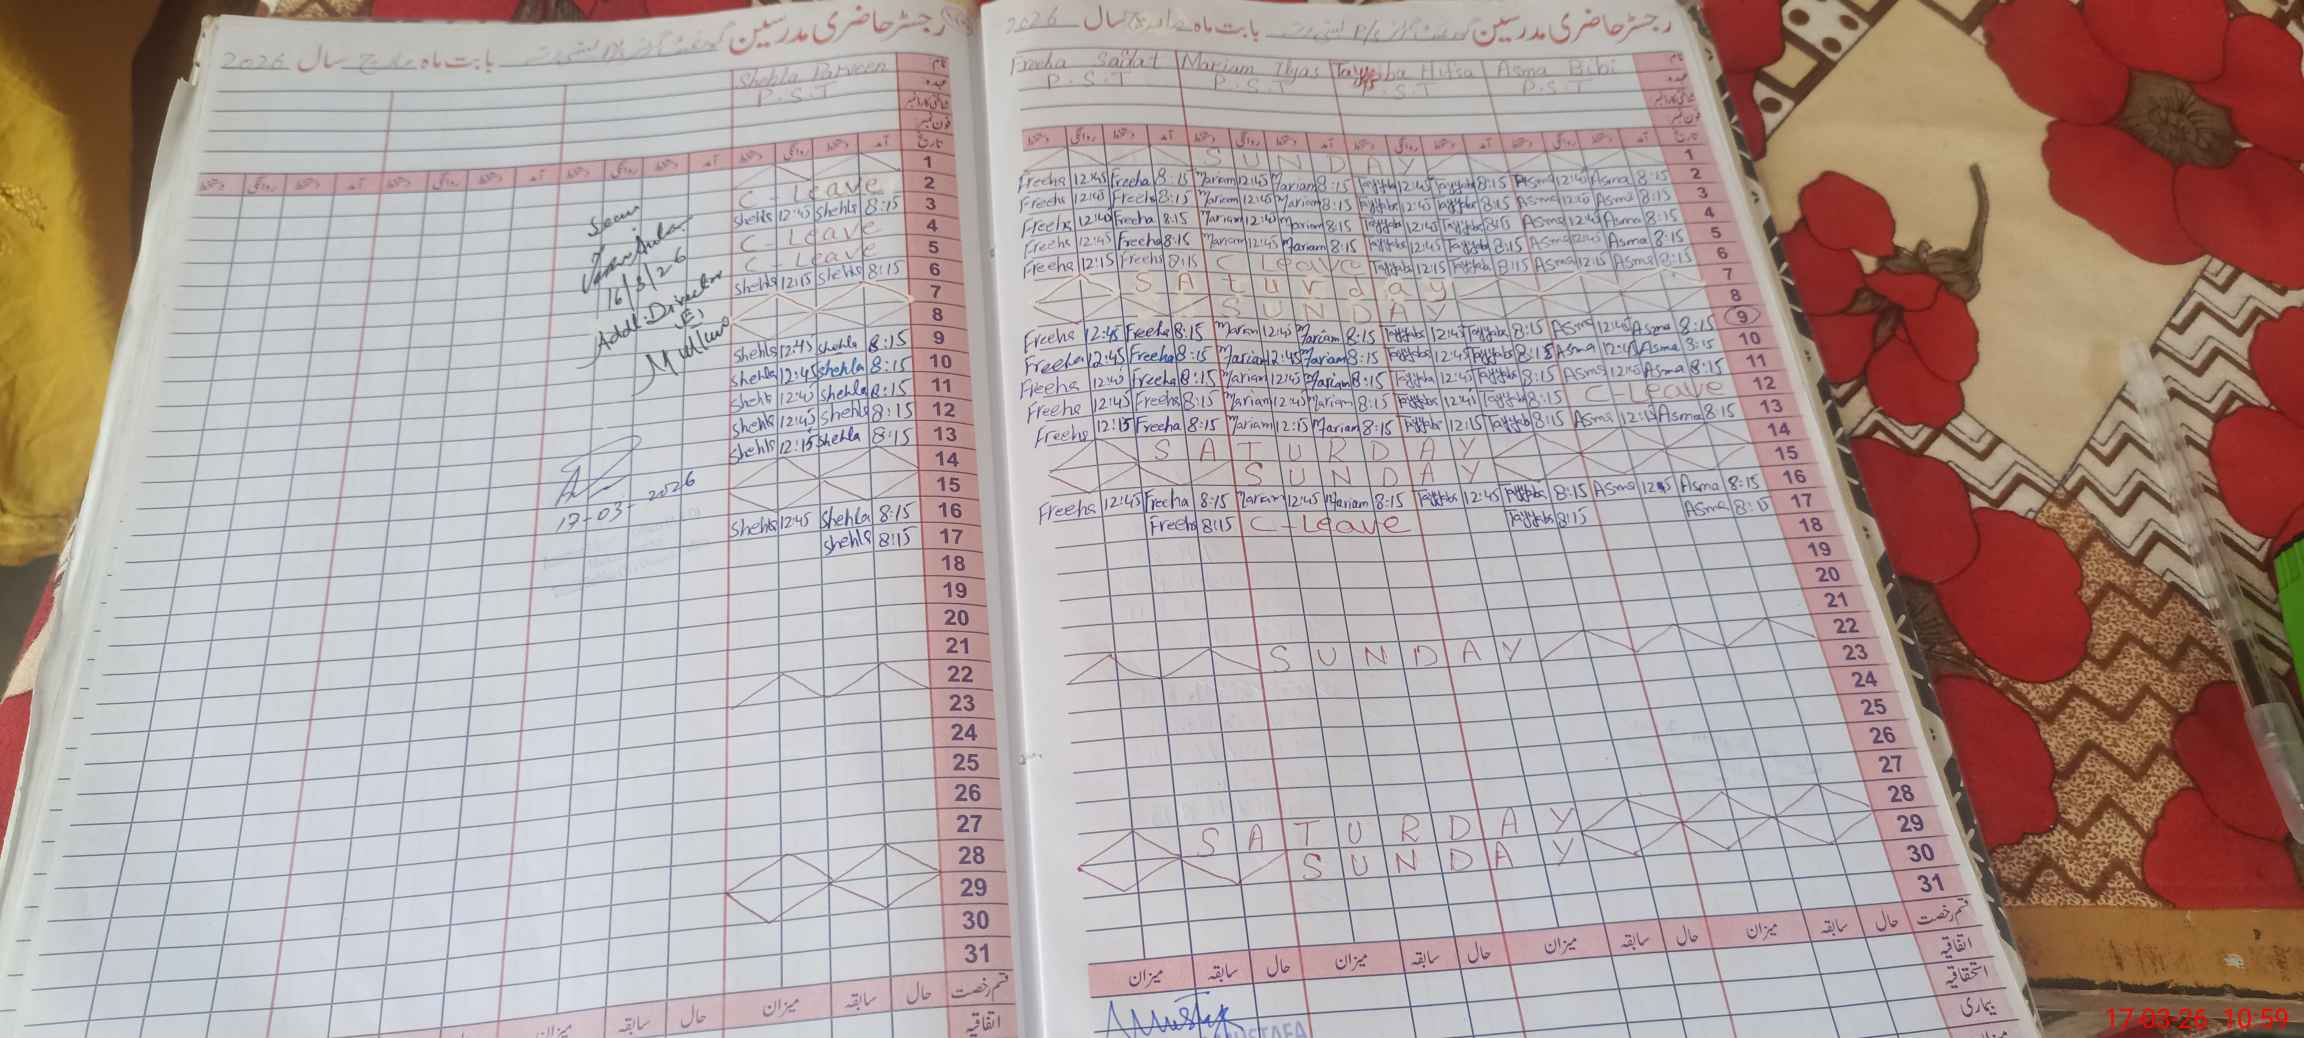 رجسٹر حاضری مدرسین بابت ماہ مارچ سال 2026
نام Shehla Parveen
عہدہ P.S.T
شناختی کارڈ نمبر
فون نمبر
تاریخ آمد دستخط روانگی دستخط آمد دستخط روانگی دستخط آمد دستخط روانگی دستخط آمد دستخط روانگی دستخط
1
2 C - Leave
3 Shehla 12:45 Shehla 8:15
4 C - Leave
5 C - Leave
6 Shehla 12:15 Shehla 8:15
7
8
9 Shehla 12:45 Shehla 8:15
10 Shehla 12:45 Shehla 8:15
11 Shehla 12:45 Shehla 8:15
12 Shehla 12:45 Shehla 8:15
13 Shehla 12:15 Shehla 8:15
14
15
16 Shehla 12:45 Shehla 8:15
17 Shehla 8:15
18
19
20
21
22
23
24
25
26
27
28
29
30
31
قسم رخصت حال سابقہ میزان حال سابقہ میزان
اتفاقیہ
Seen
16/3/26
Addl. Director
17-03-2026
رجسٹر حاضری مدرسین بابت ماہ مارچ سال 2026
نام Freeha Sadat Mariam Ilyas Tayyiba Hifsa Asma Bibi
عہدہ P.S.T P.S.T P.S.T P.S.T
شناختی کارڈ نمبر
فون نمبر
تاریخ آمد دستخط روانگی دستخط آمد دستخط روانگی دستخط آمد دستخط روانگی دستخط آمد دستخط روانگی دستخط
1 SUNDAY
2 Freeha 12:45 Freeha 8:15 Mariam 12:45 Mariam 8:15 Tayyaba 12:45 Tayyaba 8:15 Asma 12:45 Asma 8:15
3 Freeha 12:45 Freeha 8:15 Mariam 12:45 Mariam 8:15 Tayyaba 12:45 Tayyaba 8:15 Asma 12:45 Asma 8:15
4 Freeha 12:45 Freeha 8:15 Mariam 12:45 Mariam 8:15 Tayyaba 12:45 Tayyaba 8:15 Asma 12:45 Asma 8:15
5 Freeha 12:45 Freeha 8:15 Mariam 12:45 Mariam 8:15 Tayyaba 12:45 Tayyaba 8:15 Asma 12:45 Asma 8:15
6 Freeha 12:15 Freeha 8:15 C Leave Tayyaba 12:15 Tayyaba 8:15 Asma 12:15 Asma 8:15
7 SAturday
8 SUNDAY
9 Freeha 12:45 Freeha 8:15 Mariam 12:45 Mariam 8:15 Tayyaba 12:45 Tayyaba 8:15 Asma 12:45 Asma 8:15
10 Freeha 12:45 Freeha 8:15 Mariam 12:45 Mariam 8:15 Tayyaba 12:45 Tayyaba 8:15 Asma 12:45 Asma 8:15
11 Freeha 12:45 Freeha 8:15 Mariam 12:45 Mariam 8:15 Tayyaba 12:45 Tayyaba 8:15 Asma 12:45 Asma 8:15
12 Freeha 12:45 Freeha 8:15 Mariam 12:45 Mariam 8:15 Tayyaba 12:45 Tayyaba 8:15 C-Leave
13 Freeha 12:15 Freeha 8:15 Mariam 12:15 Mariam 8:15 Tayyaba 12:15 Tayyaba 8:15 Asma 12:15 Asma 8:15
14 SATURDAY
15 SUNDAY
16 Freeha 12:45 Freeha 8:15 Mariam 12:45 Mariam 8:15 Tayyaba 12:45 Tayyaba 8:15 Asma 12:45 Asma 8:15
17 Freeha 8:15 C-Leave Tayyaba 8:15 Asma 8:15
18
19
20
21
22 SUNDAY
23
24
25
26
27
28 SATURDAY
29 SUNDAY
30
31
قسم رخصت حال سابقہ میزان حال سابقہ میزان حال سابقہ میزان حال سابقہ میزان
اتفاقیہ
استحقاقیہ
بیماری
17-03-26 10:59